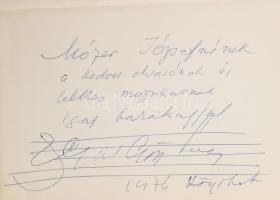 Mózer Józsefnének
a kedves olvasónak és
lelkes muzsikusnak
igaz barátsággal
1976